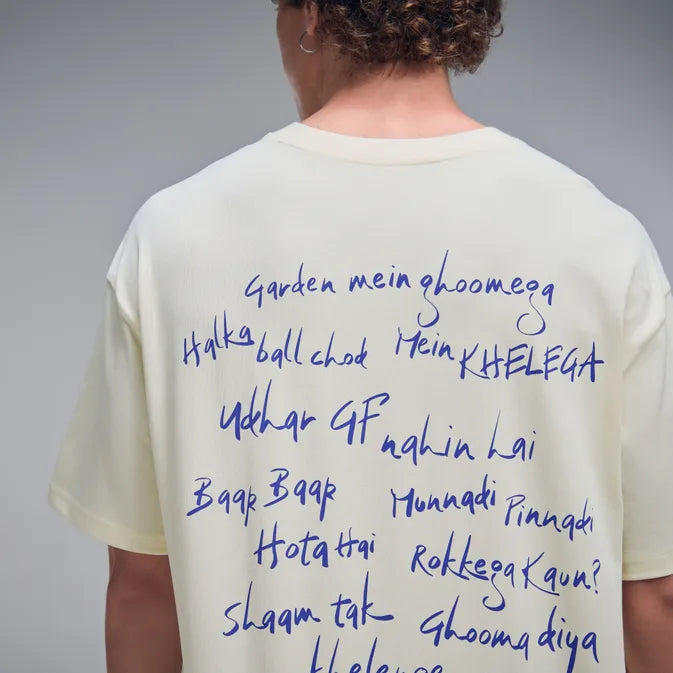 Garden mein ghoomega
Halka ball chod Mein KHELEGA
Udhar GF nahin hai
Baap Baap Munnadi Pinnadi
Hota Hai Rokkega Kaun?
Shaam tak Ghooma diya